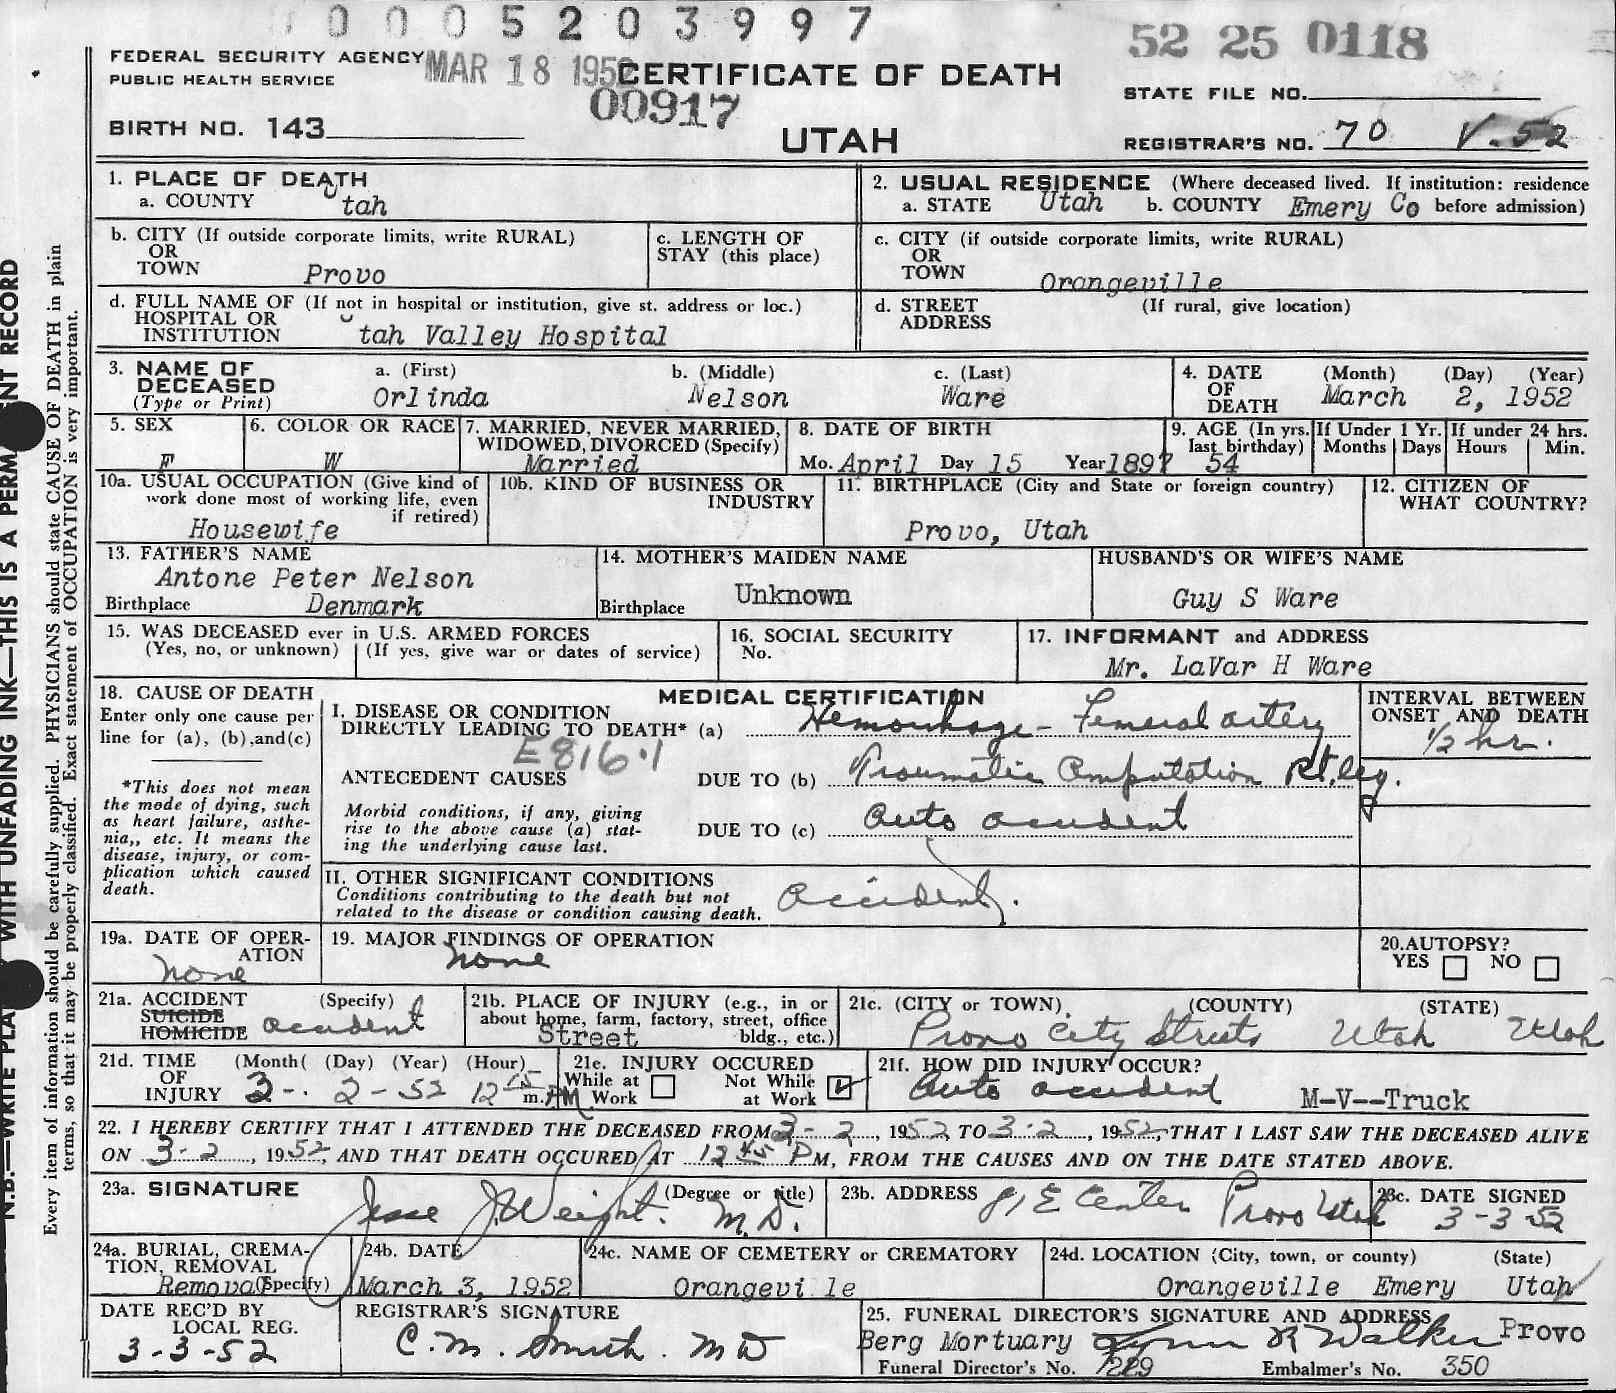 0 0 0 5 2 0 3 9 9 7
52 25 0118
FEDERAL SECURITY AGENCY
PUBLIC HEALTH SERVICE
MAR 18 1952
CERTIFICATE OF DEATH
00917
UTAH
STATE FILE NO.
BIRTH NO. 143
REGISTRAR'S NO. 70 V.52
1. PLACE OF DEATH
a. COUNTY Utah
2. USUAL RESIDENCE (Where deceased lived. If institution: residence before admission)
a. STATE Utah b. COUNTY Emery Co
b. CITY (If outside corporate limits, write RURAL)
OR
TOWN Provo
c. LENGTH OF
STAY (this place)
c. CITY (if outside corporate limits, write RURAL)
OR
TOWN Orangeville
d. FULL NAME OF (If not in hospital or institution, give st. address or loc.)
HOSPITAL OR
INSTITUTION Utah Valley Hospital
d. STREET (If rural, give location)
ADDRESS
3. NAME OF DECEASED (Type or Print)
a. (First) b. (Middle) c. (Last)
Orlinda Nelson Ware
4. DATE OF DEATH (Month) (Day) (Year)
March 2, 1952
5. SEX
F
6. COLOR OR RACE
W
7. MARRIED, NEVER MARRIED,
WIDOWED, DIVORCED (Specify)
Married
8. DATE OF BIRTH
Mo. April Day 15 Year 1897
9. AGE (In yrs. last birthday)
54
If Under 1 Yr.
Months Days
If under 24 hrs.
Hours Min.
10a. USUAL OCCUPATION (Give kind of
work done most of working life, even
if retired)
Housewife
10b. KIND OF BUSINESS OR
INDUSTRY
11. BIRTHPLACE (City and State or foreign country)
Provo, Utah
12. CITIZEN OF
WHAT COUNTRY?
13. FATHER'S NAME
Antone Peter Nelson
Birthplace Denmark
14. MOTHER'S MAIDEN NAME
Unknown
Birthplace
HUSBAND'S OR WIFE'S NAME
Guy S Ware
15. WAS DECEASED ever in U.S. ARMED FORCES
(Yes, no, or unknown) (If yes, give war or dates of service)
16. SOCIAL SECURITY
No.
17. INFORMANT and ADDRESS
Mr. LaVar H Ware
18. CAUSE OF DEATH
Enter only one cause per
line for (a), (b), and (c)
*This does not mean
the mode of dying, such
as heart failure, asthe-
nia,, etc. It means the
disease, injury, or com-
plication which caused
death.
MEDICAL CERTIFICATION
I. DISEASE OR CONDITION
DIRECTLY LEADING TO DEATH* (a) Hemorrhage - Femeral artery
E816.1
ANTECEDENT CAUSES
DUE TO (b) Traumatic Amputation Rt. leg.
Morbid conditions, if any, giving
rise to the above cause (a) stat-
ing the underlying cause last.
DUE TO (c) Auto accident
INTERVAL BETWEEN
ONSET AND DEATH
1/2 hr.
II. OTHER SIGNIFICANT CONDITIONS
Conditions contributing to the death but not
related to the disease or condition causing death.
Accident.
19a. DATE OF OPER-
ATION
none
19. MAJOR FINDINGS OF OPERATION
none
20. AUTOPSY?
YES NO
21a. ACCIDENT (Specify)
SUICIDE
HOMICIDE
accident
21b. PLACE OF INJURY (e.g., in or
about home, farm, factory, street, office
bldg., etc.)
Street
21c. (CITY or TOWN) (COUNTY) (STATE)
Provo City Streets Utah Utah
21d. TIME OF INJURY (Month( (Day) (Year) (Hour)
3-. 2-52 12 15 m. PM
21e. INJURY OCCURED
While at Work Not While at Work
21f. HOW DID INJURY OCCUR?
Auto accident M-V--Truck
22. I HEREBY CERTIFY THAT I ATTENDED THE DECEASED FROM 3-2, 1952, TO 3-2, 1952, THAT I LAST SAW THE DECEASED ALIVE
ON 3-2, 1952, AND THAT DEATH OCCURED AT 12 45 PM, FROM THE CAUSES AND ON THE DATE STATED ABOVE.
23a. SIGNATURE (Degree or title)
Jesse J. Weight. M.D.
23b. ADDRESS
E Center Provo Utah
23c. DATE SIGNED
3-3-52
24a. BURIAL, CREMA-
TION, REMOVAL
Removal (Specify)
24b. DATE
March 3, 1952
24c. NAME OF CEMETERY or CREMATORY
Orangevi le
24d. LOCATION (City, town, or county) (State)
Orangeville Emery Utah
DATE REC'D BY
LOCAL REG.
3-3-52
REGISTRAR'S SIGNATURE
C. M. Smith. MD
25. FUNERAL DIRECTOR'S SIGNATURE AND ADDRESS
Berg Mortuary Lynn R Walker Provo
Funeral Director's No. Embalmer's No. 350
N.B.—WRITE PLA WITH UNFADING INK—THIS IS A PERM ENT RECORD
Every item of information should be carefully supplied. PHYSICIANS should state CAUSE OF DEATH in plain
terms, so that it may be properly classified. Exact statement of OCCUPATION is very important.